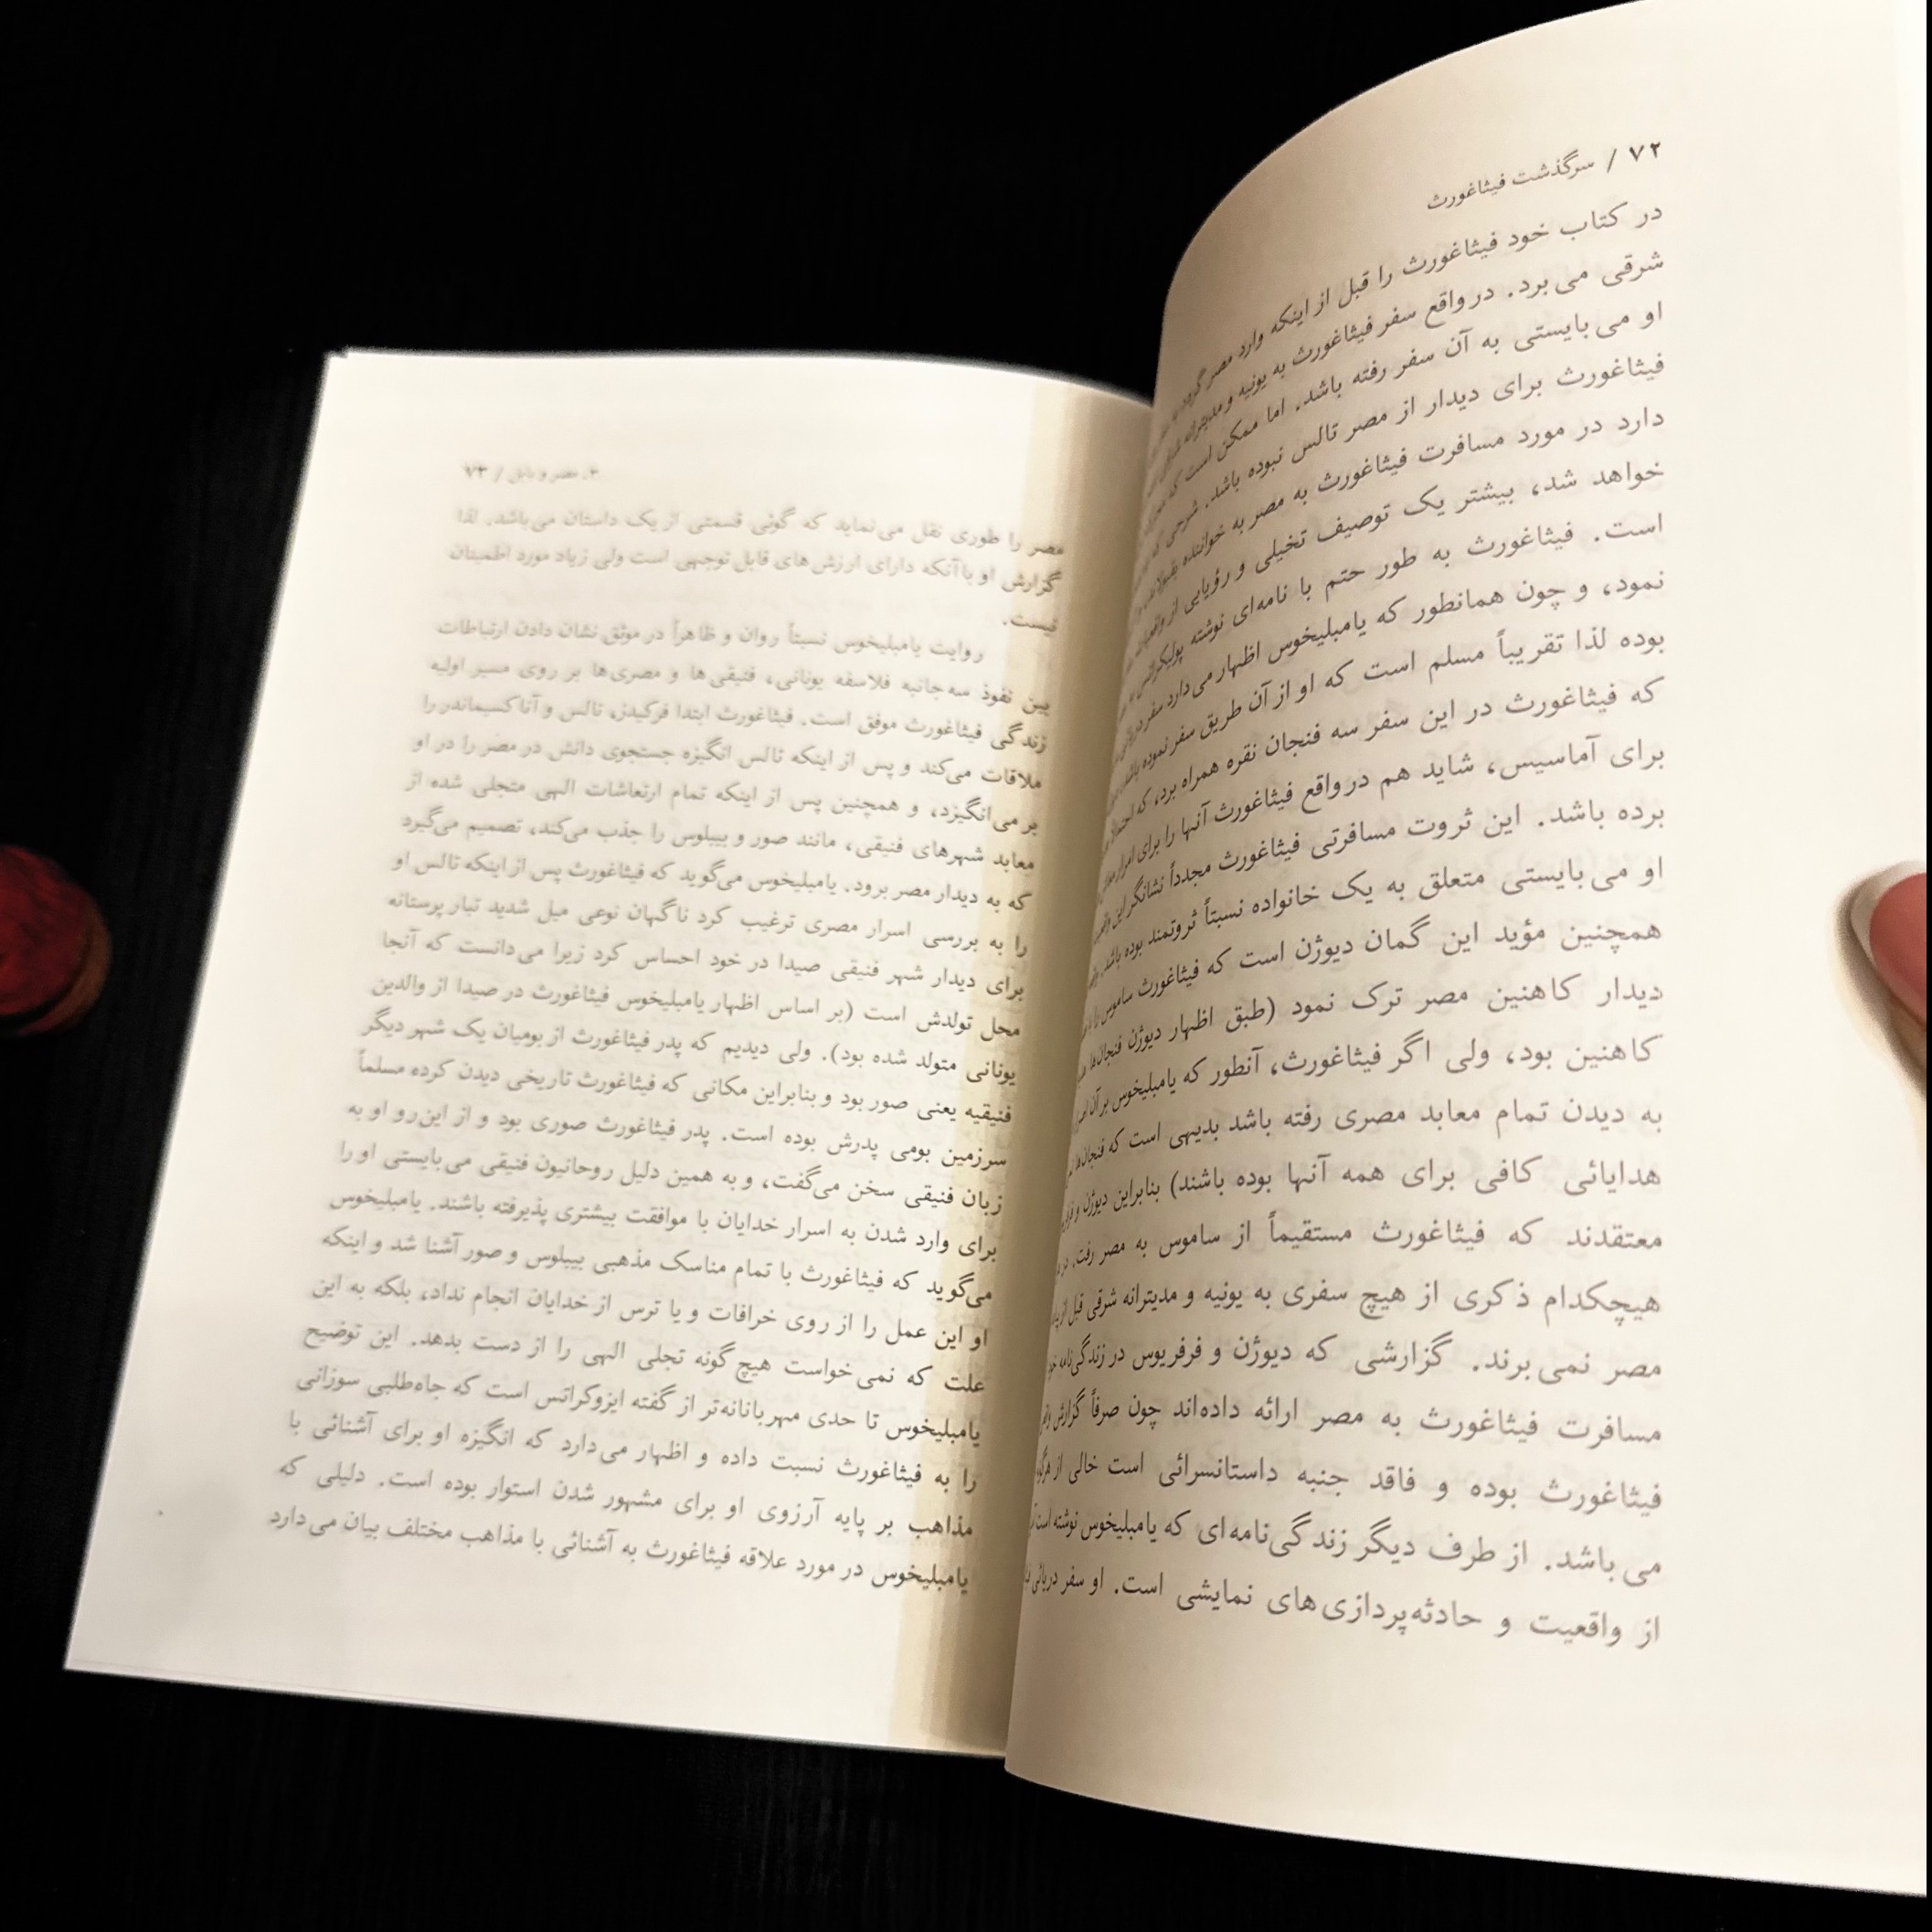 ۷۲ / سرگذشت فیثاغورث
در کتاب خود فیثاغورث را قبل از اینکه وارد مصر
شرقی می‌برد. در واقع سفر فیثاغورث به یونیه و مدیترانه
او می‌بایستی به آن سفر رفته باشد. اما ممکن است که
فیثاغورث برای دیدار از مصر تالس نبوده باشد. شرحی که
دارد در مورد مسافرت فیثاغورث به مصر به خواننده
خواهد شد، بیشتر یک توصیف تخیلی و رؤیایی از
است. فیثاغورث به طور حتم با نامه‌ای نوشته پولیکراتس
نمود، و چون همانطور که یامبلیخوس اظهار می‌دارد سفر
بوده لذا تقریباً مسلم است که او از آن طریق سفر نموده باشد
که فیثاغورث در این سفر سه فنجان نقره همراه برد، که
برای آماسیس، شاید هم در واقع فیثاغورث آنها را برای
برده باشد. این ثروت مسافرتی فیثاغورث مجدداً نشانگر این
او می‌بایستی متعلق به یک خانواده نسبتاً ثروتمند بوده باشد.
همچنین مؤید این گمان دیوژن است که فیثاغورث ساموس را
دیدار کاهنین مصر ترک نمود (طبق اظهار دیوژن فنجان‌ها
کاهنین بود، ولی اگر فیثاغورث، آنطور که یامبلیخوس بر آن
به دیدن تمام معابد مصری رفته باشد بدیهی است که فنجان‌ها
هدایائی کافی برای همه آنها بوده باشند) بنابراین دیوژن و
معتقدند که فیثاغورث مستقیماً از ساموس به مصر رفت.
هیچکدام ذکری از هیچ سفری به یونیه و مدیترانه شرقی قبل از
مصر نمی‌برند. گزارشی که دیوژن و فرفریوس در زندگی‌نامه
مسافرت فیثاغورث به مصر ارائه داده‌اند چون صرفاً گزارش
فیثاغورث بوده و فاقد جنبه داستانسرائی است خالی از
می‌باشد. از طرف دیگر زندگی‌نامه‌ای که یامبلیخوس نوشته است
از واقعیت و حادثه‌پردازی‌های نمایشی است. او سفر دریائی
۳. مصر و بابل / ۷۳
مصر را طوری نقل می‌نماید که گوئی قسمتی از یک داستان می‌باشد. لذا
گزارش او با آنکه دارای ارزش‌های قابل توجهی است ولی زیاد مورد اطمینان
نیست.
روایت یامبلیخوس نسبتاً روان و ظاهراً در موثق نشان دادن ارتباطات
بین نفوذ سه‌جانبه فلاسفه یونانی، فنیقی‌ها و مصری‌ها بر روی مسیر اولیه
زندگی فیثاغورث موفق است. فیثاغورث ابتدا فرکیدز، تالس و آناکسیماندر را
ملاقات می‌کند و پس از اینکه تالس انگیزه جستجوی دانش در مصر را در او
بر می‌انگیزد، و همچنین پس از اینکه تمام ارتعاشات الهی متجلی شده از
معابد شهرهای فنیقی، مانند صور و بیبلوس را جذب می‌کند، تصمیم می‌گیرد
که به دیدار مصر برود. یامبلیخوس می‌گوید که فیثاغورث پس از اینکه تالس او
را به بررسی اسرار مصری ترغیب کرد ناگهان نوعی میل شدید تبار پرستانه
برای دیدار شهر فنیقی صیدا در خود احساس کرد زیرا می‌دانست که آنجا
محل تولدش است (بر اساس اظهار یامبلیخوس فیثاغورث در صیدا از والدین
یونانی متولد شده بود). ولی دیدیم که پدر فیثاغورث از بومیان یک شهر دیگر
فنیقیه یعنی صور بود و بنابراین مکانی که فیثاغورث تاریخی دیدن کرده مسلماً
سرزمین بومی پدرش بوده است. پدر فیثاغورث صوری بود و از این‌رو او به
زبان فنیقی سخن می‌گفت، و به همین دلیل روحانیون فنیقی می‌بایستی او را
برای وارد شدن به اسرار خدایان با موافقت بیشتری پذیرفته باشند. یامبلیخوس
می‌گوید که فیثاغورث با تمام مناسک مذهبی بیبلوس و صور آشنا شد و اینکه
او این عمل را از روی خرافات و یا ترس از خدایان انجام نداد، بلکه به این
علت که نمی‌خواست هیچ‌گونه تجلی الهی را از دست بدهد. این توضیح
یامبلیخوس تا حدی مهربانانه‌تر از گفته ایزوکراتس است که جاه‌طلبی سوزانی
را به فیثاغورث نسبت داده و اظهار می‌دارد که انگیزه او برای آشنائی با
مذاهب بر پایه آرزوی او برای مشهور شدن استوار بوده است. دلیلی که
یامبلیخوس در مورد علاقه فیثاغورث به آشنائی با مذاهب مختلف بیان می‌دارد